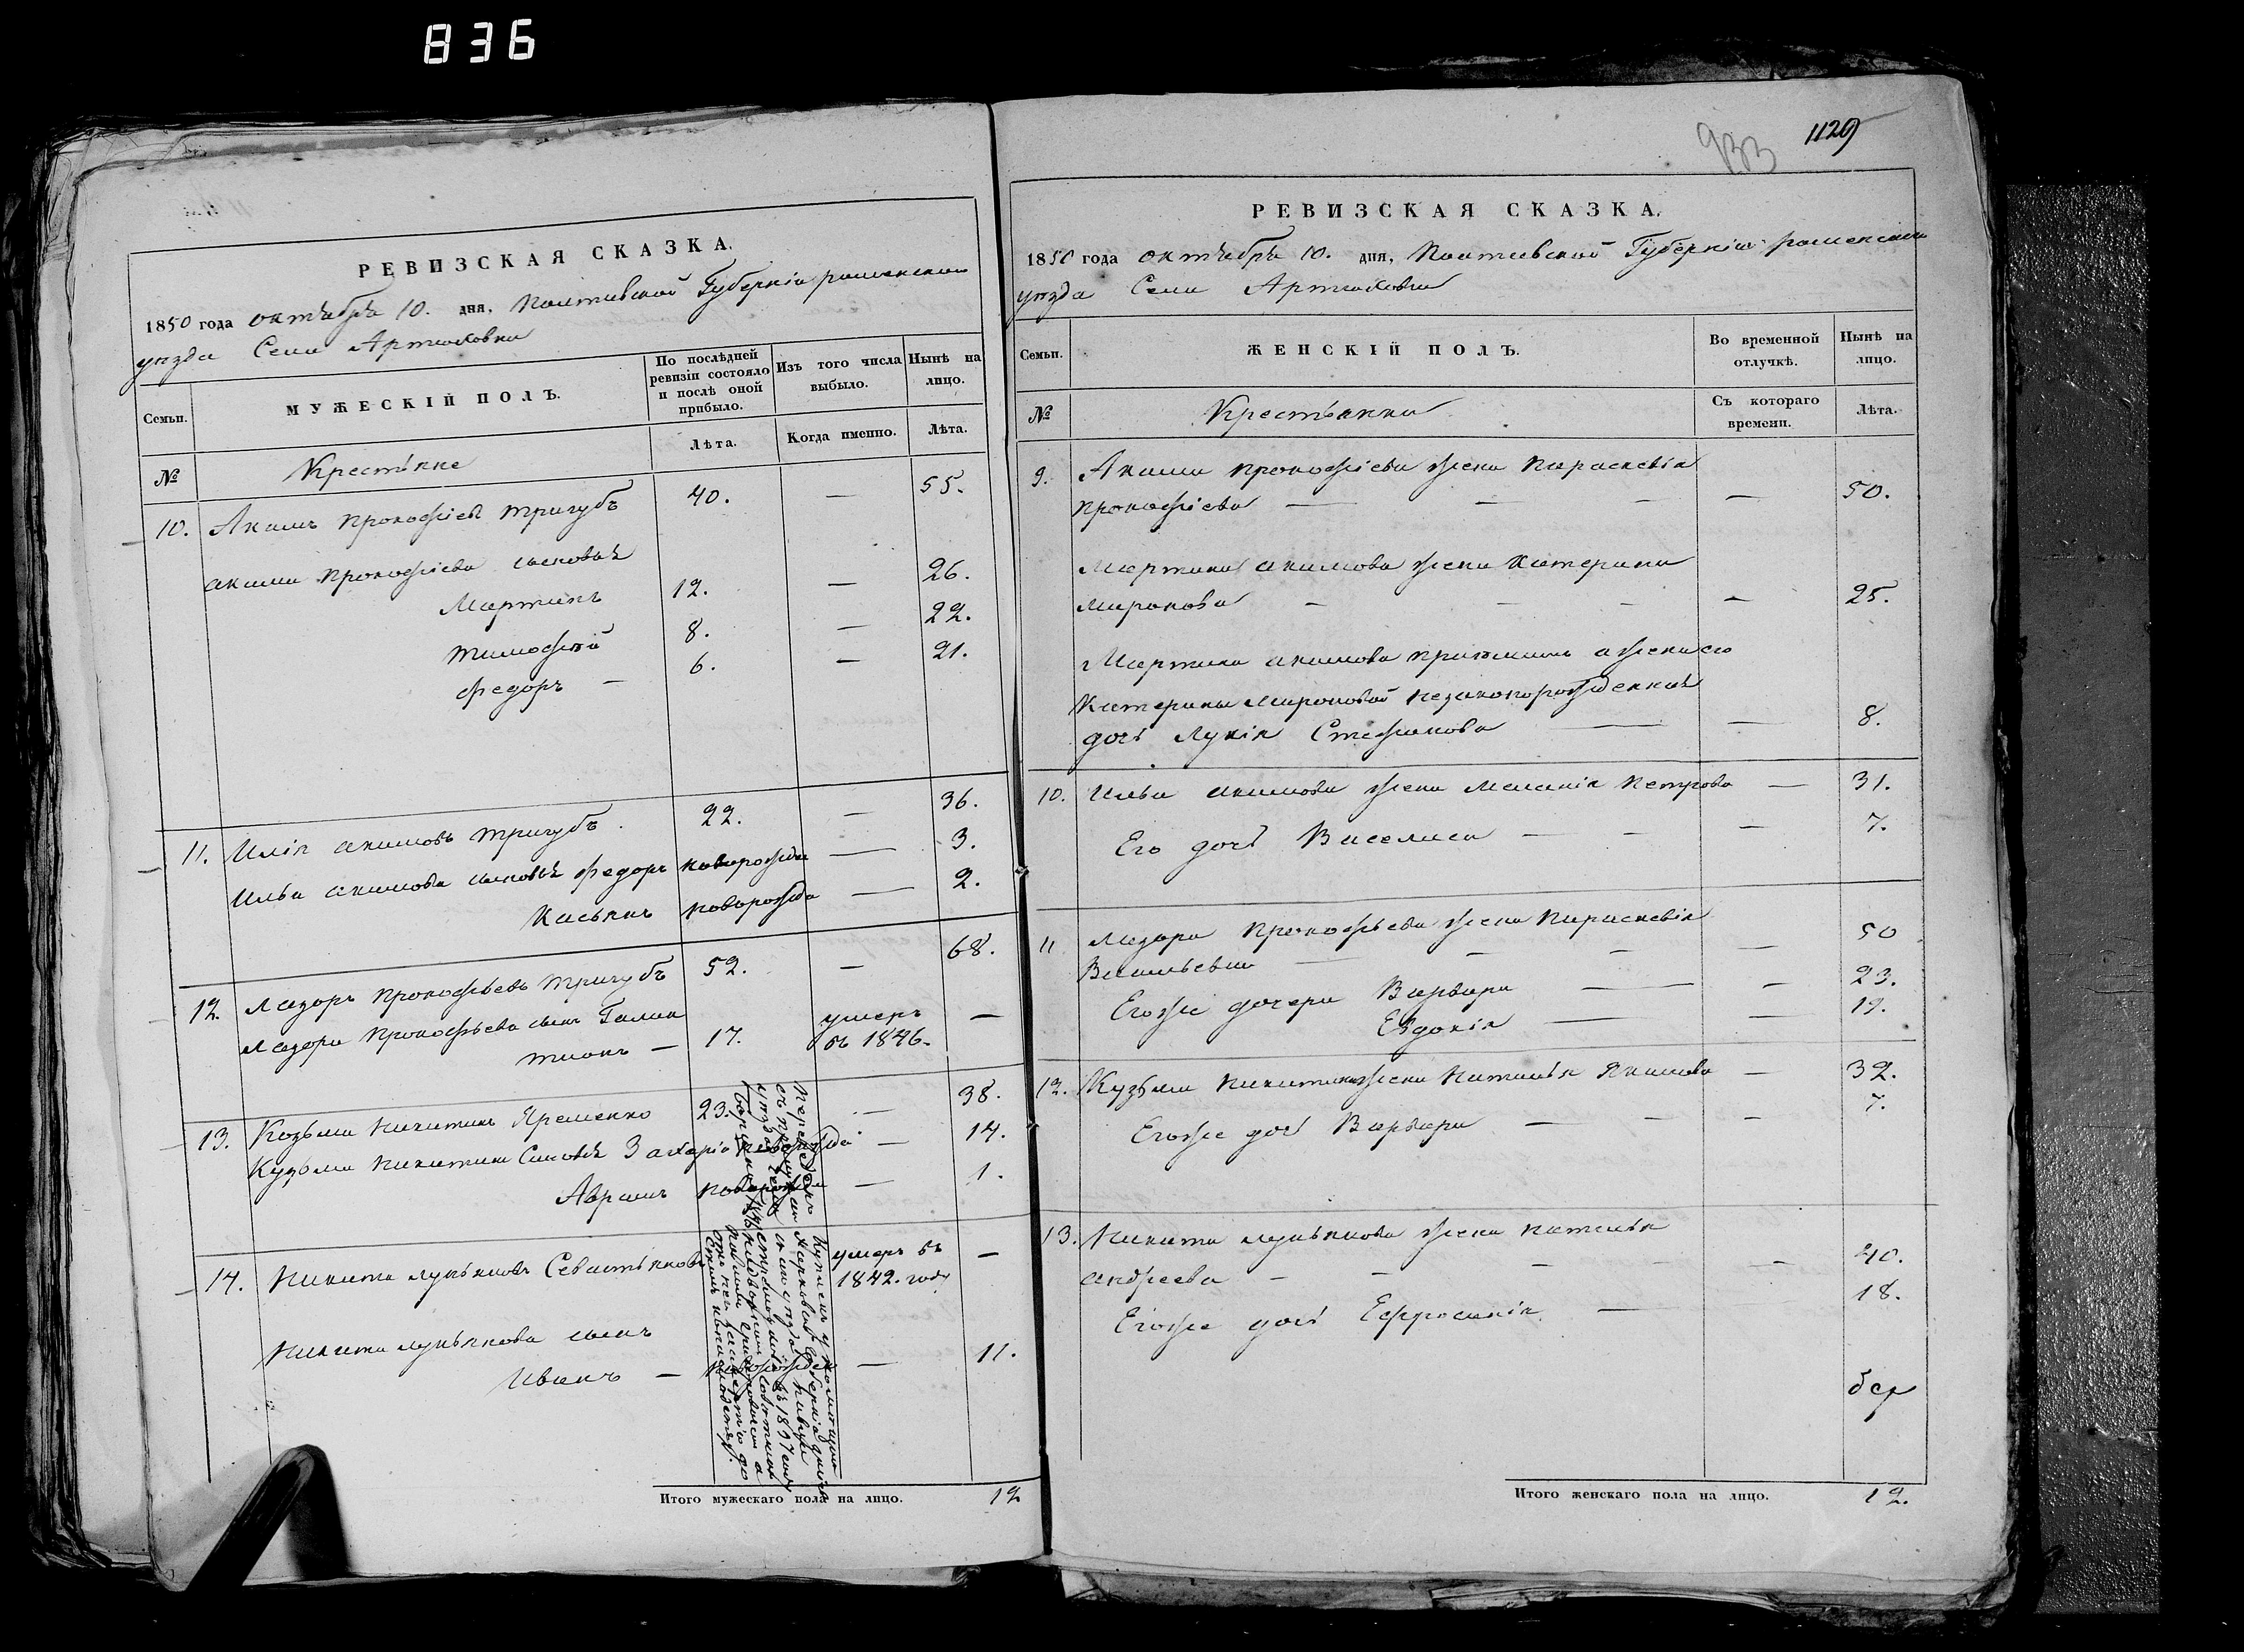 836
РЕВИЗСКАЯ СКАЗКА.
1850 года октября 10. дня, Полтавской Губерніи роменского
уѣзда Села Артюховки
Семьи.
МУЖЕСКІЙ ПОЛЪ.
По послѣдней
ревизіи состояло
и послѣ оной
прибыло.
Изъ того числа
выбыло.
Нынѣ на
лицо.
Лѣта.
Когда именно.
Лѣта.
№
Крестьяне
10. Акимъ Прокофіевъ Тригубъ 40. — 55.
акима Прокофіева сыновья
Мартинъ 12. — 26.
Тимофѣй 8. — 22.
Федоръ — 6. — 21.
11. Илія акимовъ Тригубъ. 22. — 36.
Ильи акимова сыновья Федоръ новорожде — 3.
Касьянъ новорожде — 2.
12. Лазоръ Прокофьевъ Тригубъ 52. — 68.
Лазора Прокофьева сынъ Гала
тионъ — 17. умеръ —
въ 1846.
13. Козьма Никитинъ Яременко 23. — 38.
Кузьмы Никитина Сыновья Захарій новорожде — 14.
Аврамъ новорожде — 1.
14. Никита лукьяновъ Севастьяновъ умеръ въ —
1842. году
Никиты лукьянова сынъ
Иванъ — новорожден — 11.
Итого мужескаго пола на лицо. 12
933
1129
РЕВИЗСКАЯ СКАЗКА.
1850 года октября 10. дня, Полтавской Губерніи роменского
уѣзда Села Артюховки
Семьи.
ЖЕНСКІЙ ПОЛЪ.
Во временной
отлучкѣ.
Нынѣ на
лицо.
№
Крестьянки
Съ котораго
времени.
Лѣта.
9. Акима Прокофіева жена Параскевія
Прокофіева — — — — 50.
Мартина акимова жена Катерина
Миронова — — — — 25.
Мартина акимова а жены его
Катерины Мироновой незаконорожденная
дочь Лукія Стефанова — — 8.
10. Ильи акимова жена Меланія Петрова — 31.
Его дочь Васелиса — — — 7.
11 Лазора Прокофьева жена Параскевія
Васильевна — — — — 50
Егоже дочери Варвара — — 23.
Евдокія — — 19.
12. Кузьмы Никитина жена Наталья Якимова — 32.
Егоже дочь Варвара — — — 7.
13. Никиты лукьянова жена Наталья
андреева — — — — — 40.
Егоже дочь Ефросинія — 18.
Итого женскаго пола на лицо. 12.